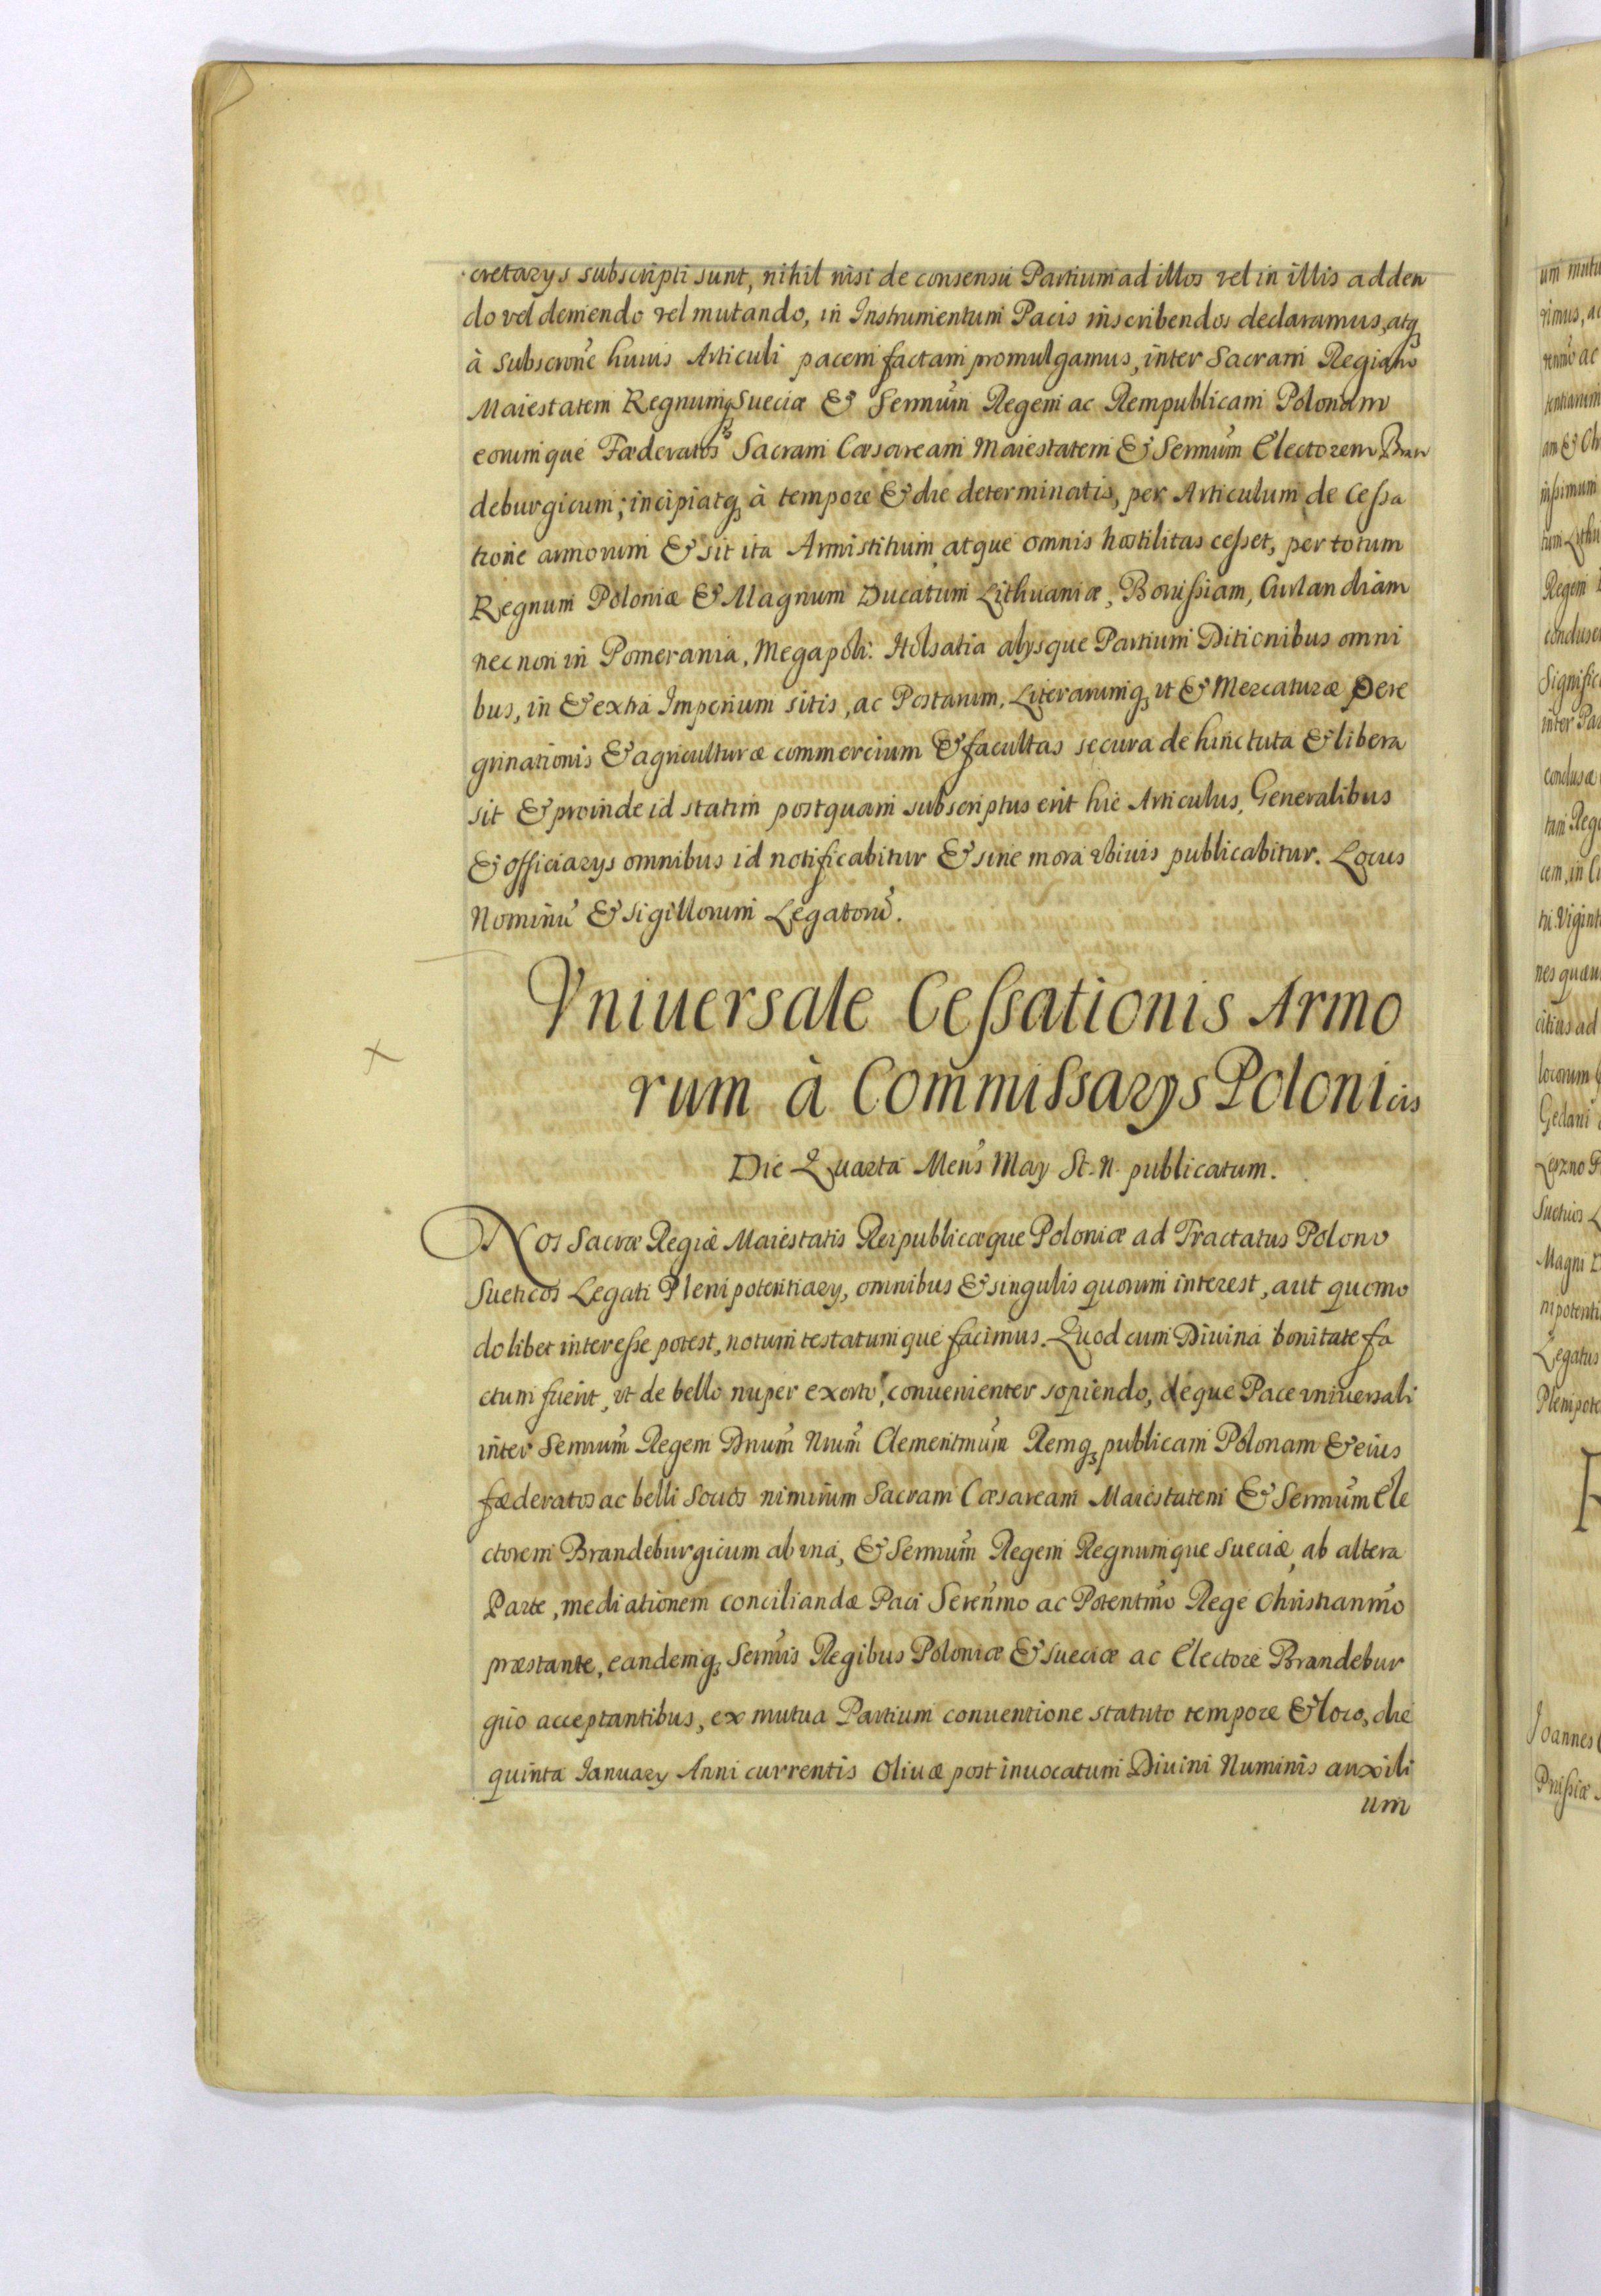 cretarys subscripti sunt, nihil nisi de consensu Partium ad illos vel in illis adden
do vel demendo vel mutando, in Instrumentum Pacis inscribendos declaramus, atq
à subscrõne huius Articuli pacem factam promulgamus, inter Sacram Regiam
Maiestatem Regnumq Sueciæ & Sermum Regem ac Rempublicam Polonam
eorumque Fæderatos Sacram Cæsaream Maiestatem & Sermum Electorem Bran
deburgicum; incipiatq à tempore & die determinatis, per Articulum de Cessa
tione armorum & sit ita Armistitium atque omnis hostilitas cesset, per totum
Regnum Poloniæ & Magnum Ducatum Lithuaniæ, Borussiam, Curlandiam
nec non in Pomerania, Megapoli. Holsatia alysque Partium Ditionibus omni
bus, in & extra Imperium sitis, ac Postarum, Literarumq vt & Mercaturæ Pere
grinationis & agriculturæ commercium & facultas secura dehinc tuta & libera
sit & proinde id statim postquam subscriptus erit hic Articulus, Generalibus
& officiarys omnibus id notificabitur & sine mora vbiuis publicabitur. Locus
Nominũ & sigillorum Legatorũ.
Vniuersale Cessationis Armo
rum à Commissarys Polonicis
Die Quarta Mens May St. N. publicatum.
Nos Sacræ Regiæ Maiestatis Reipublicæque Poloniæ ad Tractatus Polono
Sueticos Legati Plenipotentiary, omnibus & singulis quorum interest, aut quomo
dolibet interesse potest, notum testatumque facimus. Quod cum Diuina bonitate fa
ctum fuerit, vt de bello nuper exorto, conuenienter sopiendo, deque Pace vniuersali
inter Sermum Regem Dnum Nrum Clementmum Remq publicam Polonam & eius
fæderatos ac belli Socios nimirum Sacram Cæsaream Maiestatem & Sermum Ele
ctorem Brandeburgicum ab vna, & Sermum Regem Regnumque Sueciæ, ab altera
Parte, mediationem conciliandæ Paci Serenmo ac Potentmo Rege Christianmo
præstante, eandemq Sermis Regibus Poloniæ & Sueciæ ac Electore Brandebur
gico acceptantibus, ex mutua Partium conuentione statuto tempore & loco, die
quinta January Anni currentis Oliuæ post inuocatum Diuini Numinis auxili
um